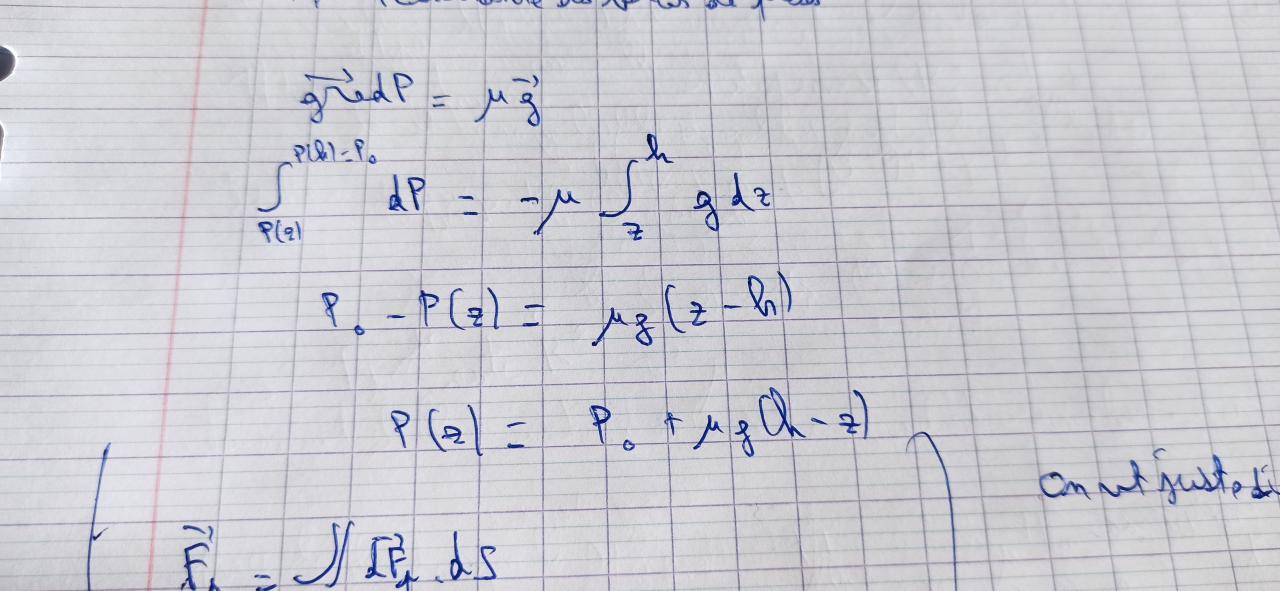 grad P = μg
∫_{P(z)}^{P(h)=P₀} dP = -μ ∫_{z}^{h} g dz
P₀ - P(z) = μg(z - h)
P(z) = P₀ + μg(h - z)
On juste
F = ∫∫ dF . dS